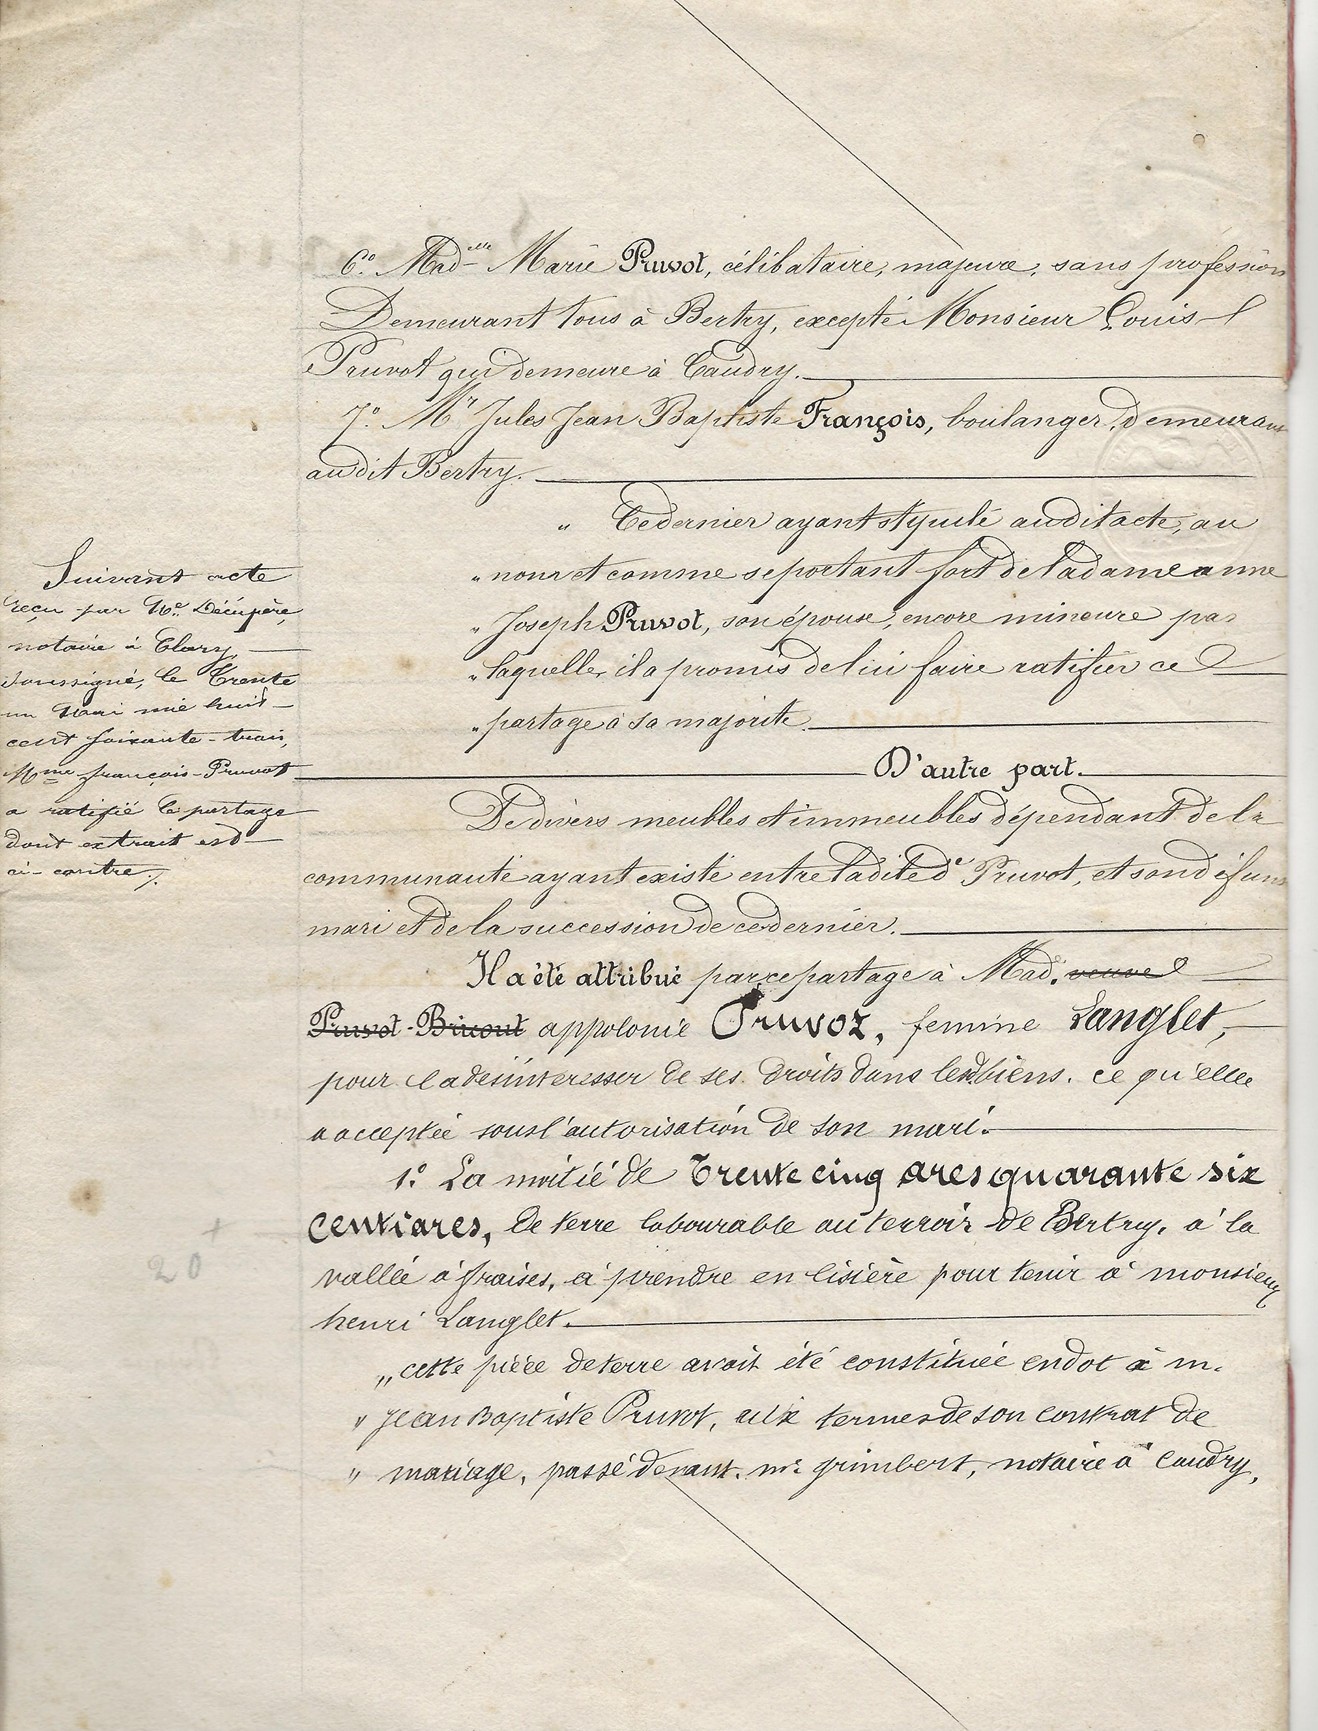 6.° Mad.elle Marie Pruvot, célibataire, majeure, sans profession
Demeurant tous à Bertry, excepté Monsieur Louis
Pruvot qui demeure à Caudry.
7.° Mr Jules Jean Baptiste François, boulanger, demeurant
audit Bertry.
" Ce dernier ayant stipulé audit acte, au
" nom et comme se portant fort de la dame anne
" Joseph Pruvot, son épouse, encore mineure par
" laquelle, il a promis de lui faire ratifier ce
" partage à sa majorité.
Suivant acte
reçu par Me Décupère,
notaire à Clary,
soussigné, le trente
un Mai mil huit
cent soixante-trois,
Mme françois-Pruvot
a ratifié le partage
dont extrait est
ci-contre ./.
D'autre part.
De divers meubles et immeubles dépendant de la
communauté ayant existé entre ladite de Pruvot, et son défunt
mari et de la succession de ce dernier.
Il a été attribué par ce partage à Mad. veuve
Pruvot-Bricout appolonie Pruvoz, femme Langlet,
pour la désintéresser de ses droits dans lesd. biens. ce qu'elle
a acceptée sous l'autorisation de son mari.
1.° La moitié de Trente cinq ares quarante six
centiares, de terre labourable au terroir de Bertry, à la
vallée à fraises, à prendre en lisière pour tenir à monsieur
henri Langlet.
" cette pièce de terre avait été constituée en dot à m.
" Jean Baptiste Pruvot, aux termes de son contrat de
" mariage, passé devant me grimbert, notaire à Caudry,
20 +